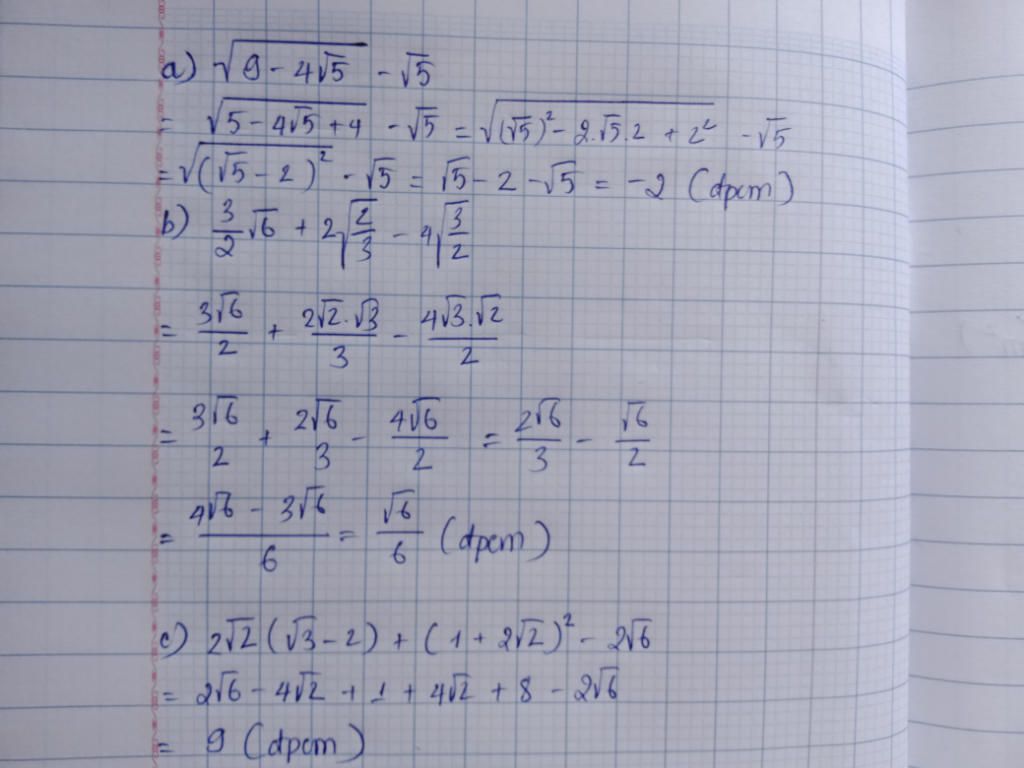 a) √(9 - 4√5) - √5
= √(5 - 4√5 + 4) - √5 = √((√5)² - 2.√5.2 + 2²) - √5
= √((√5 - 2)²) - √5 = √5 - 2 - √5 = -2 (đpcm)
b) 3/2 √6 + 2√(2/3) - 4√(3/2)
= 3√6/2 + 2√2.√3/3 - 4√3.√2/2
= 3√6/2 + 2√6/3 - 4√6/2 = 2√6/3 - √6/2
= (4√6 - 3√6)/6 = √6/6 (đpcm)
c) 2√2(√3 - 2) + (1 + 2√2)² - 2√6
= 2√6 - 4√2 + 1 + 4√2 + 8 - 2√6
= 9 (đpcm)